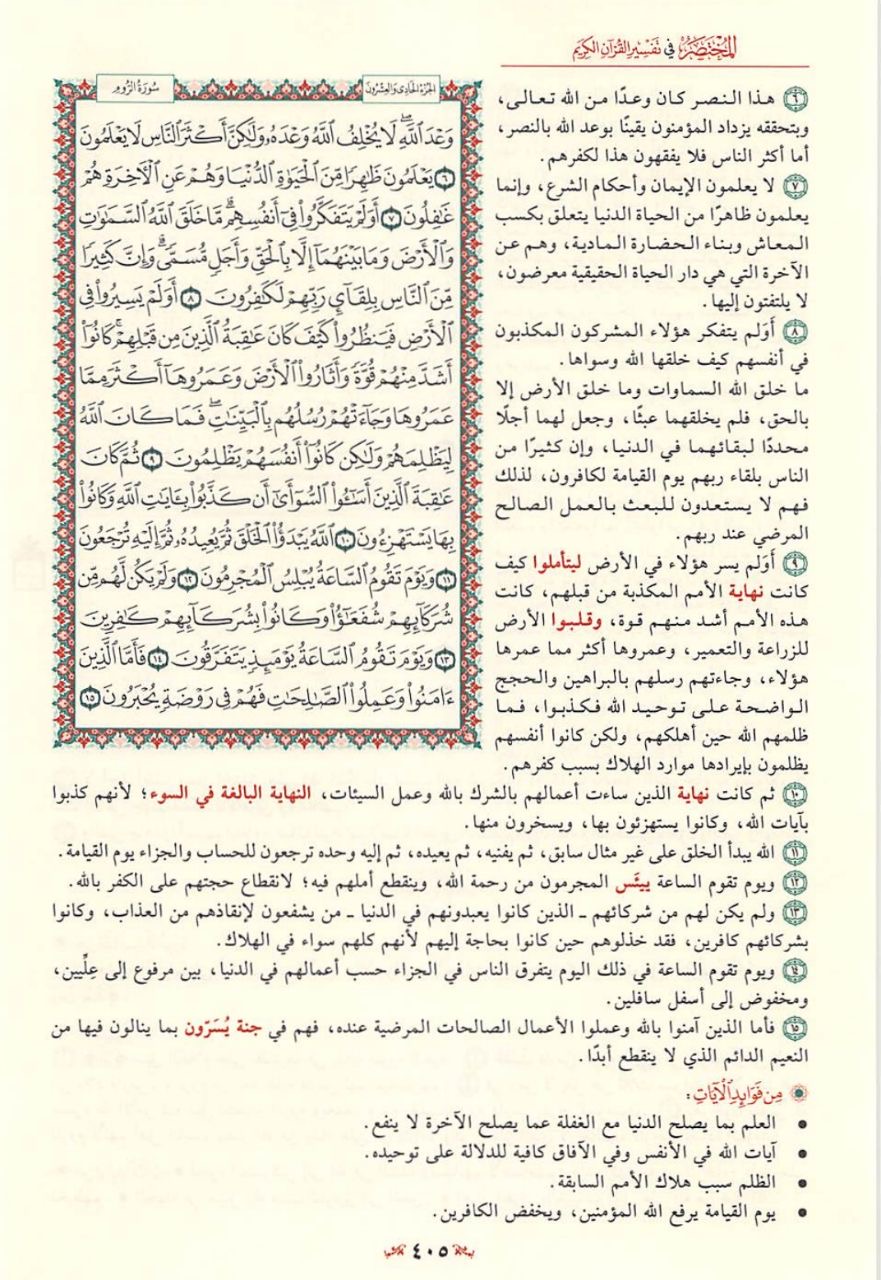 المختصر في تفسير القرآن الكريم
الجزء الحادي والعشرون
سورة الروم
وَعْدَ ٱللَّهِۖ لَا يُخْلِفُ ٱللَّهُ وَعْدَهُۥ وَلَٰكِنَّ أَكْثَرَ ٱلنَّاسِ لَا يَعْلَمُونَ
٦ يَعْلَمُونَ ظَٰهِرًا مِّنَ ٱلْحَيَوٰةِ ٱلدُّنْيَا وَهُمْ عَنِ ٱلْأٓخِرَةِ هُمْ
غَٰفِلُونَ ٧ أَوَلَمْ يَتَفَكَّرُوا۟ فِىٓ أَنفُسِهِمۗ مَّا خَلَقَ ٱللَّهُ ٱلسَّمَٰوَٰتِ
وَٱلْأَرْضَ وَمَا بَيْنَهُمَآ إِلَّا بِٱلْحَقِّ وَأَجَلٍ مُّسَمًّىۗ وَإِنَّ كَثِيرًا
مِّنَ ٱلنَّاسِ بِلِقَآئِ رَبِّهِمْ لَكَٰفِرُونَ ٨ أَوَلَمْ يَسِيرُوا۟ فِى
ٱلْأَرْضِ فَيَنظُرُوا۟ كَيْفَ كَانَ عَٰقِبَةُ ٱلَّذِينَ مِن قَبْلِهِمْۚ كَانُوٓا۟
أَشَدَّ مِنْهُمْ قُوَّةً وَأَثَارُوا۟ ٱلْأَرْضَ وَعَمَرُوهَآ أَكْثَرَ مِمَّا
عَمَرُوهَا وَجَآءَتْهُمْ رُسُلُهُم بِٱلْبَيِّنَٰتِۖ فَمَا كَانَ ٱللَّهُ
لِيَظْلِمَهُمْ وَلَٰكِن كَانُوٓا۟ أَنفُسَهُمْ يَظْلِمُونَ ٩ ثُمَّ كَانَ
عَٰقِبَةَ ٱلَّذِينَ أَسَٰٓـُٔوا۟ ٱلسُّوٓأَىٰٓ أَن كَذَّبُوا۟ بِـَٔايَٰتِ ٱللَّهِ وَكَانُوا۟
بِهَا يَسْتَهْزِءُونَ ١٠ ٱللَّهُ يَبْدَؤُا۟ ٱلْخَلْقَ ثُمَّ يُعِيدُهُۥ ثُمَّ إِلَيْهِ تُرْجَعُونَ
١١ وَيَوْمَ تَقُومُ ٱلسَّاعَةُ يُبْلِسُ ٱلْمُجْرِمُونَ ١٢ وَلَمْ يَكُن لَّهُم مِّن
شُرَكَآئِهِمْ شُفَعَٰٓؤُا۟ وَكَانُوا۟ بِشُرَكَآئِهِمْ كَٰفِرِينَ
١٣ وَيَوْمَ تَقُومُ ٱلسَّاعَةُ يَوْمَئِذٍ يَتَفَرَّقُونَ ١٤ فَأَمَّا ٱلَّذِينَ
ءَامَنُوا۟ وَعَمِلُوا۟ ٱلصَّٰلِحَٰتِ فَهُمْ فِى رَوْضَةٍ يُحْبَرُونَ ١٥
٦ هذا النصر كان وعدًا من الله تعالى،
وبتحققه يزداد المؤمنون يقينًا بوعد الله بالنصر،
أما أكثر الناس فلا يفقهون هذا لكفرهم.
٧ لا يعلمون الإيمان وأحكام الشرع، وإنما
يعلمون ظاهرًا من الحياة الدنيا يتعلق بكسب
المعاش وبناء الحضارة المادية، وهم عن
الآخرة التي هي دار الحياة الحقيقية معرضون،
لا يلتفتون إليها.
٨ أوَلم يتفكر هؤلاء المشركون المكذبون
في أنفسهم كيف خلقها الله وسواها.
ما خلق الله السماوات وما خلق الأرض إلا
بالحق، فلم يخلقهما عبثًا، وجعل لهما أجلًا
محددًا لبقائهما في الدنيا، وإن كثيرًا من
الناس بلقاء ربهم يوم القيامة لكافرون، لذلك
فهم لا يستعدون للبعث بالعمل الصالح
المرضي عند ربهم.
٩ أوَلم يسر هؤلاء في الأرض ليتأملوا كيف
كانت نهاية الأمم المكذبة من قبلهم، كانت
هذه الأمم أشد منهم قوة، وقلبوا الأرض
للزراعة والتعمير، وعمروها أكثر مما عمرها
هؤلاء، وجاءتهم رسلهم بالبراهين والحجج
الواضحة على توحيد الله فكذبوا، فما
ظلمهم الله حين أهلكهم، ولكن كانوا أنفسهم
يظلمون بإيرادها موارد الهلاك بسبب كفرهم.
١٠ ثم كانت نهاية الذين ساءت أعمالهم بالشرك بالله وعمل السيئات، النهاية البالغة في السوء؛ لأنهم كذبوا
بآيات الله، وكانوا يستهزئون بها، ويسخرون منها.
١١ الله يبدأ الخلق على غير مثال سابق، ثم يفنيه، ثم يعيده، ثم إليه وحده ترجعون للحساب والجزاء يوم القيامة.
١٢ ويوم تقوم الساعة ييئَس المجرمون من رحمة الله، وينقطع أملهم فيه؛ لانقطاع حجتهم على الكفر بالله.
١٣ ولم يكن لهم من شركائهم - الذين كانوا يعبدونهم في الدنيا - من يشفعون لإنقاذهم من العذاب، وكانوا
بشركائهم كافرين، فقد خذلوهم حين كانوا بحاجة إليهم لأنهم كلهم سواء في الهلاك.
١٤ ويوم تقوم الساعة في ذلك اليوم يتفرق الناس في الجزاء حسب أعمالهم في الدنيا، بين مرفوع إلى عِلِّيين،
ومخفوض إلى أسفل سافلين.
١٥ فأما الذين آمنوا بالله وعملوا الأعمال الصالحات المرضية عنده، فهم في جنة يُسَرّون بما ينالون فيها من
النعيم الدائم الذي لا ينقطع أبدًا.
من فوائد الآيات:
• العلم بما يصلح الدنيا مع الغفلة عما يصلح الآخرة لا ينفع.
• آيات الله في الأنفس وفي الآفاق كافية للدلالة على توحيده.
• الظلم سبب هلاك الأمم السابقة.
• يوم القيامة يرفع الله المؤمنين، ويخفض الكافرين.
٤٠٥